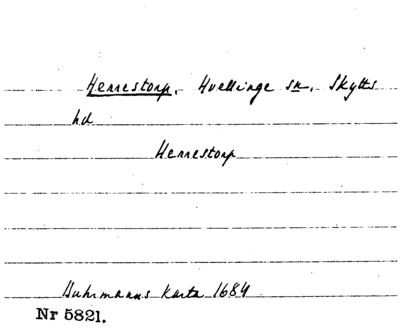 Herrestorp. Hvellinge sn. Skytts
hd
Herrestorp
Buhrmanns karta 1684
Nr 5821.